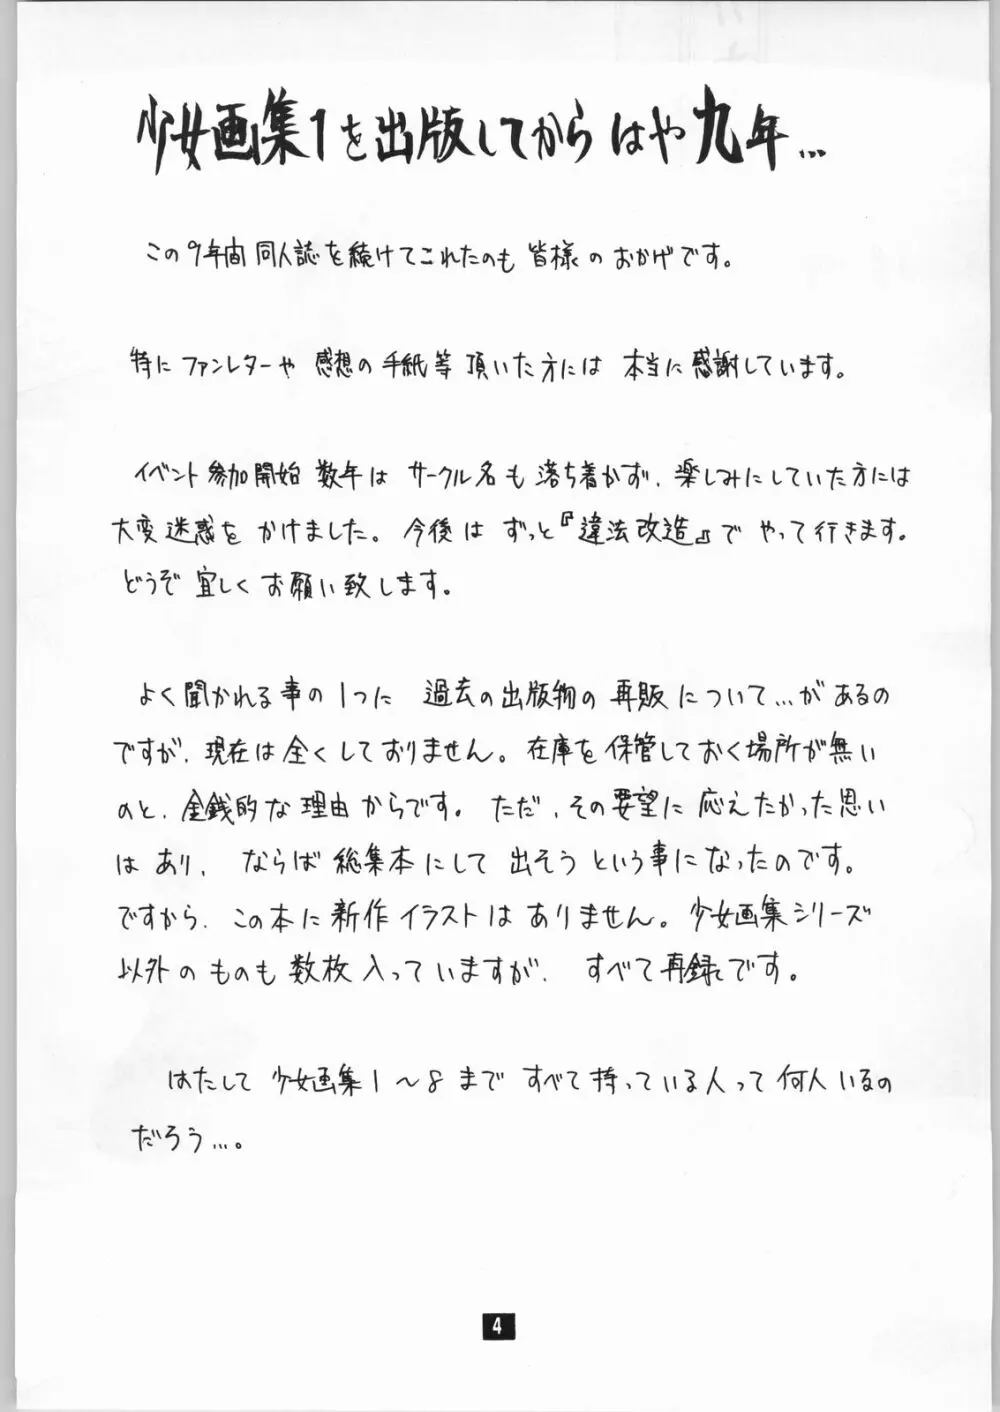 少女画集1を出版してからはや九年...
この9年間同人誌を続けてこれたのも皆様のおかげです。
特にファンレターや感想の手紙等頂いた方には本当に感謝しています。
イベント参加開始数年はサークル名も落ち着かず、楽しみにしていた方には
大変迷惑をかけました。今後はずっと『違法改造』でやって行きます。
どうぞ宜しくお願い致します。
よく聞かれる事の1つに過去の出版物の再販について...があるの
ですが、現在は全くしておりません。在庫を保管しておく場所が無い
のと、金銭的な理由からです。ただ、その要望に応えたかった思い
はあり、ならば総集本にして出そうという事になったのです。
ですから、この本に新作イラストはありません。少女画集シリーズ
以外のものも数枚入っていますが、すべて再録です。
はたして少女画集1〜8まですべて持っている人って何人いるの
だろう...。
4